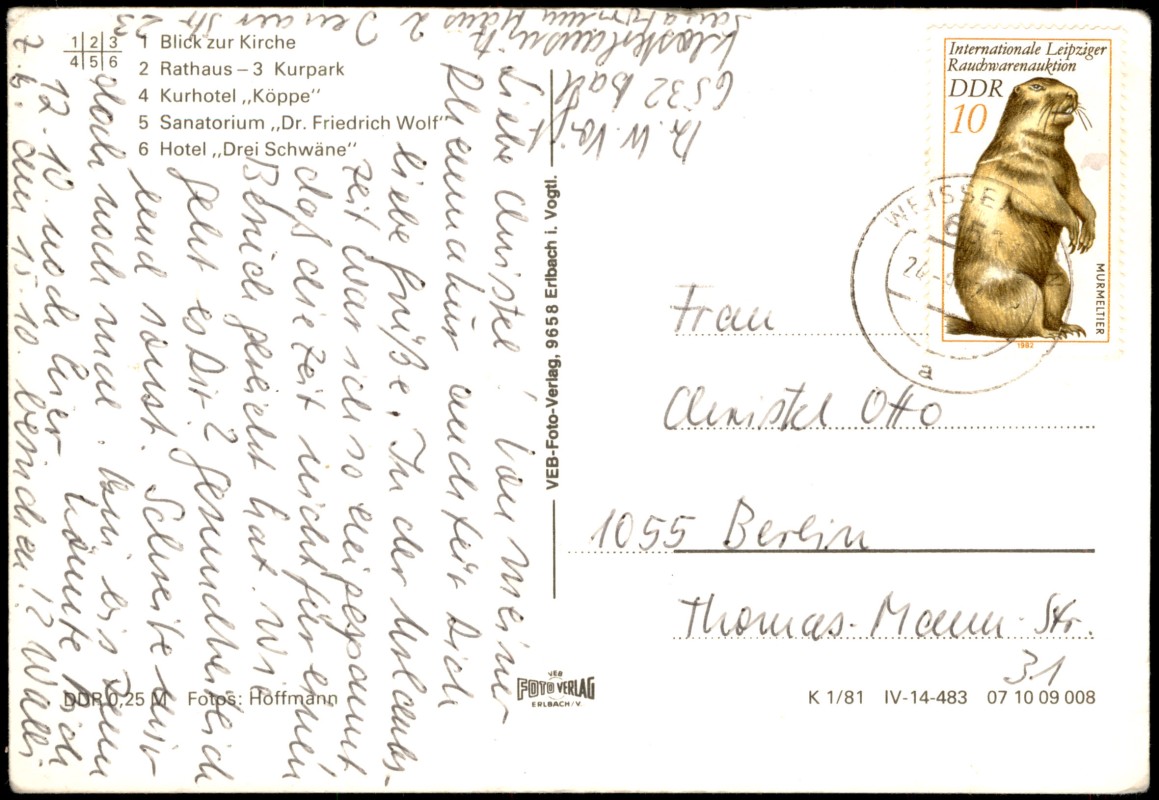 1 2 3
4 5 6
1 Blick zur Kirche
2 Rathaus – 3 Kurpark
4 Kurhotel „Köppe“
5 Sanatorium „Dr. Friedrich Wolf“
6 Hotel „Drei Schwäne“
Dr. W. Voigt
6532 Bad
Klosterlausnitz
Sanatorium Haus 2 Jenaer Str 23
Liebe Christel! Von meiner
Rheumakur auch für Dich
liebe Grüße. In der Urlaubs-
zeit war ich so eingespannt
daß die Zeit nicht für einen
Besuch gereicht hat. Wie
geht es Dir? Gesundheitlich
und sonst. Schreibe mir
doch noch mal. Bin bis zum
12.10. noch hier. Könnte Dich
z.B. am 15.10. besuchen!? Willi
VEB-Foto-Verlag, 9658 Erlbach i. Vogtl.
Internationale Leipziger
Rauchwarenauktion
DDR
10
MURMELTIER
1982
WEISSE
a
Frau
Christel Otto
1055 Berlin
Thomas-Mann-Str.
31
DDR 0,25 M Fotos: Hoffmann
VEB
FOTO VERLAG
ERLBACH/V.
K 1/81 IV-14-483 07 10 09 008